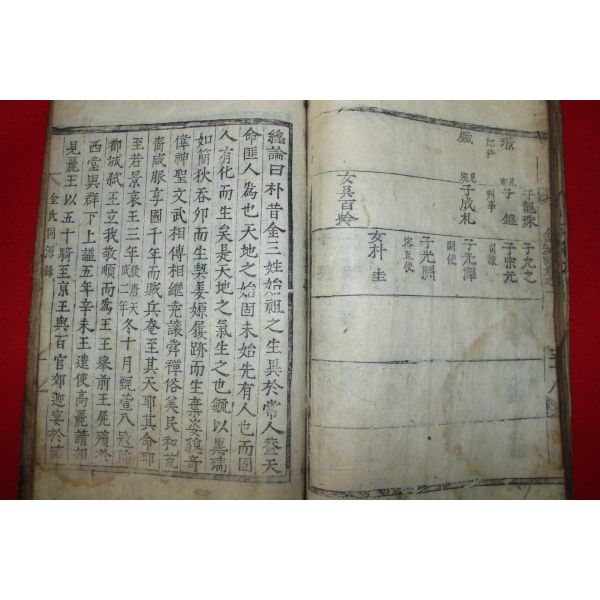 子龍珠
子允之
子鑑
子宗元
判事
子成札
子光澤
副使
子光淵
女朴圭
女吳百
緫論曰朴昔金三姓始祖之生異於常人盖天
命匪人為也天地之始固未始先有人也而固
人有化而生矣是天地之氣生之也觀以異瑞
如簡狄吞卵而生契姜嫄履跡而生棄姿貌奇
偉神聖文武相傳相繼尭讓舜禪俗美民和
咸服享國千年而賊兵奄至其天耶其命耶
至若景哀王三年後唐天成二年冬十月甄萱入
都城弑王立我敬順而為王王舉前王屍殯於
西堂與群下上諡五年辛未王遣使高麗請相
見麗王以五十騎至京王與百官郊迎宴於
金氏同源錄